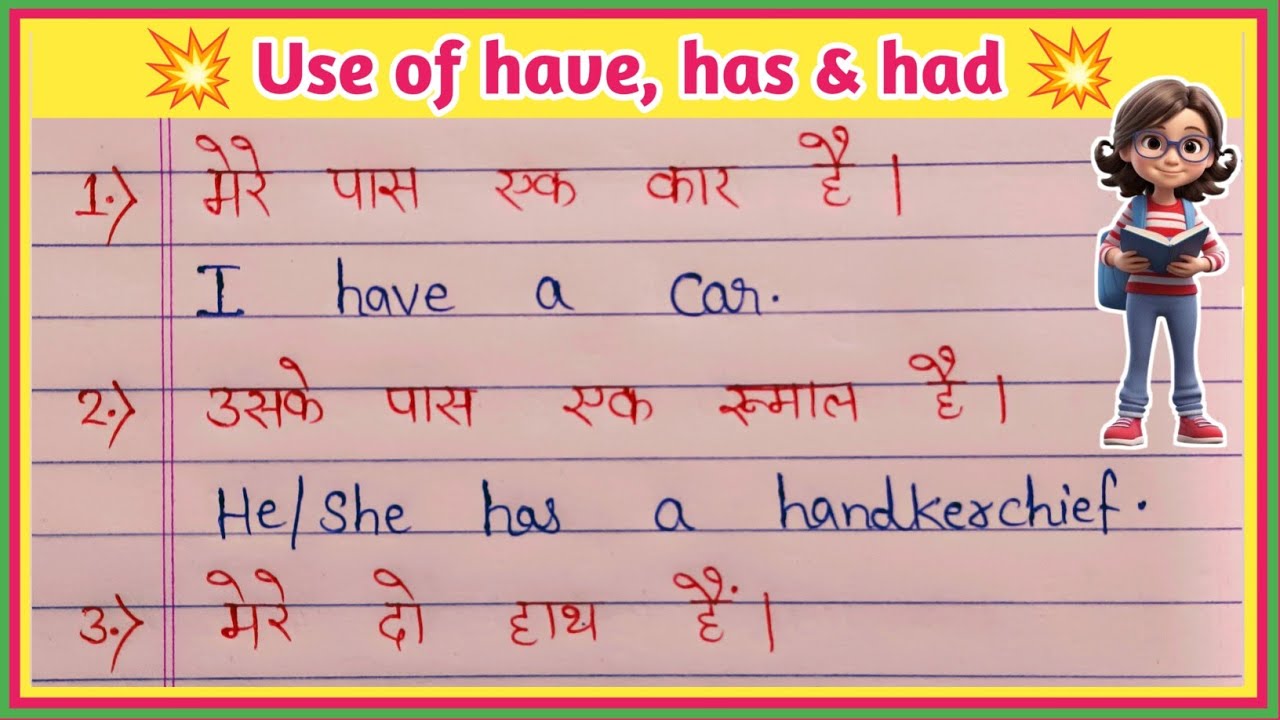 Use of have, has & had
1.) मेरे पास एक कार है।
I have a car.
2.) उसके पास एक रूमाल है।
He/She has a handkerchief.
3.) मेरे दो हाथ हैं।